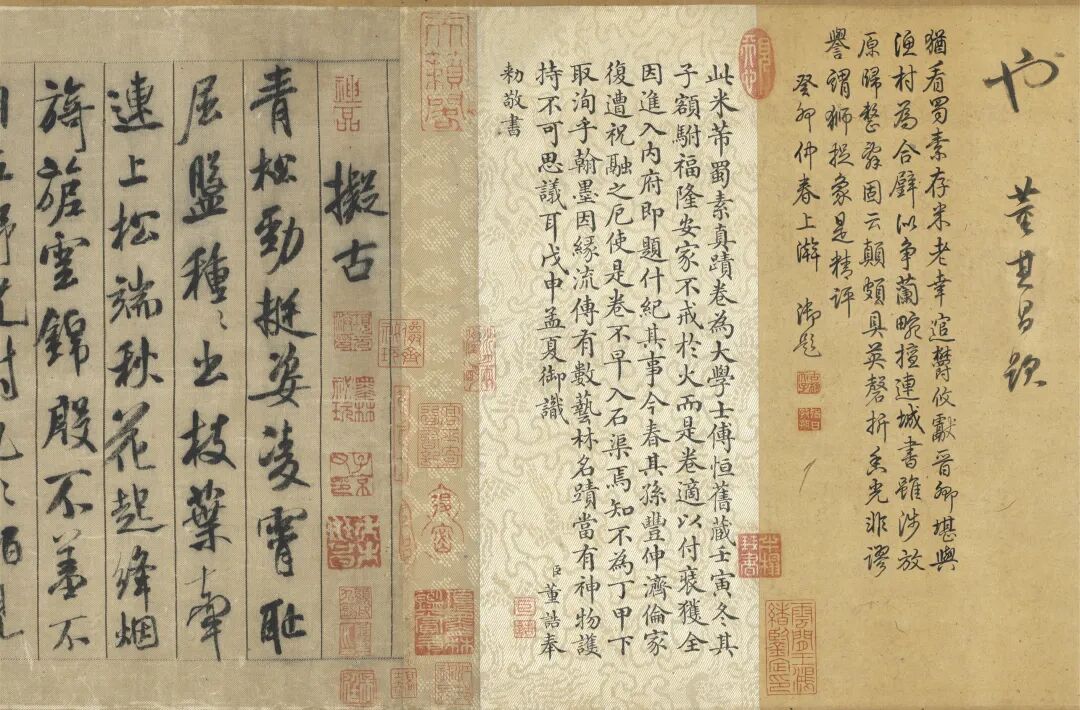 也 董其昌題
猶看蜀素存米老幸逭欝攸獻晉卿堪與
漁村為合璧以爭蘭畹擅連城書雖涉放
原歸整翁固云顛頗具英磬折香光非謬
譽謂獅捉象是精評
癸卯仲春上澣 御題
此米芾蜀素真蹟卷為大學士傅恒舊藏壬寅冬其
子額駙福隆安家不戒於火而是卷適以付裝獲全
因進入內府即題什紀其事今春其孫豐伸濟倫家
復遭祝融之厄使是卷不早入石渠焉知不為丁甲下
取洵乎翰墨因緣流傳有數藝林名蹟當有神物護
持不可思議耳戊申孟夏御識
臣董誥奉
勅敬書
擬古
青松勁挺姿凌霄恥
屈盤種〻出枝葉牽
連上松端秋花起絳烟
旖旎雲錦殷不羞不